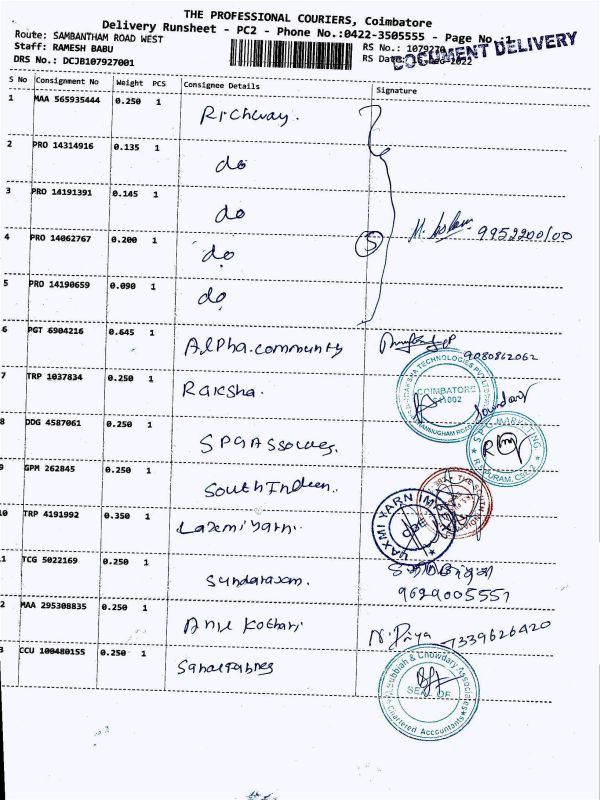 THE PROFESSIONAL COURIERS, Coimbatore
Delivery Runsheet - PC2 - Phone No.:0422-3505555 - Page No.:1
Route: SAMBANTHAM ROAD WEST
RS No.: 1079270
DOCUMENT DELIVERY
Staff: RAMESH BABU
RS Date:
DRS No.: DCJB107927001
S No Consignment No Weight PCS Consignee Details Signature
1 MAA 565935444 0.250 1 Richway.
2 PRO 14314916 0.135 1 do
3 PRO 14191391 0.145 1 do
4 PRO 14062767 0.200 1 do 5 9952200100
5 PRO 14190659 0.090 1 do
6 PGT 6904216 0.645 1 Alpha community 9080862062
7 TRP 1037834 0.250 1 Raksha.
COIMBATORE
8 DDG 4587061 0.250 1 SPG Associates.
SPG MARKETING
R.S.PURAM, CBE-2
9 GPM 262845 0.250 1 South Indian.
10 TRP 4191992 0.350 1 Laxmi Yarn.
LAXMI YARN IMPEX
11 TCG 5022169 0.250 1 Sundaram.
9629005551
12 MAA 295308835 0.250 1 Anil Kothari N. Priya 7339626420
13 CCU 100480155 0.250 1
Subbiah & Chowdary Associates
SEAL OF
Chartered Accountants